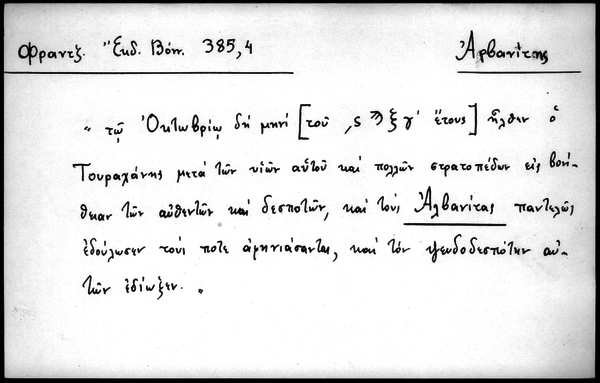 Φραντζ. Ἔκδ. Βόν. 385,4 Ἀρβανίτης
" τῷ Ὀκτωβρίῳ δὴ μηνὶ [τοῦ ͵ϛϡξγ' ἔτους] ἦλθεν ὁ
Τουραχάνης μετὰ τῶν υἱῶν αὐτοῦ καὶ πολλῶν στρατοπέδων εἰς βοή-
θειαν τῶν αὐθεντῶν καὶ δεσποτῶν, καὶ τοὺς Ἀλβανίτας παντελῶς
ἐδούλωσεν τοὺς ποτε ἀμηνιάσαντας, καὶ τὸν ψευδοδεσπότην αὐ-
τῶν ἐδίωξεν. "